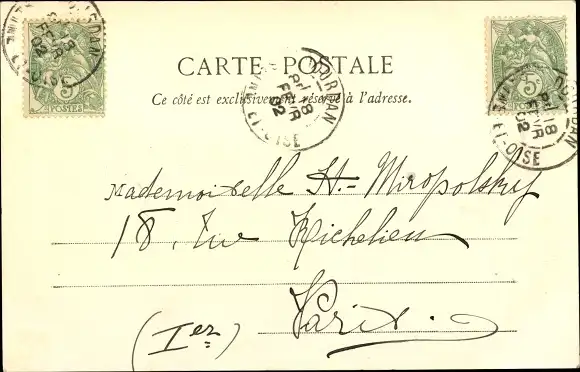 CARTE POSTALE
Ce côté est exclusivement réservé à l'adresse.
5
POSTES
5
DOURDAN
18
FEVR
02
ET-OISE
Mademoiselle H. Miropolsky
18, rue Richelieu
Paris.
(Ier)